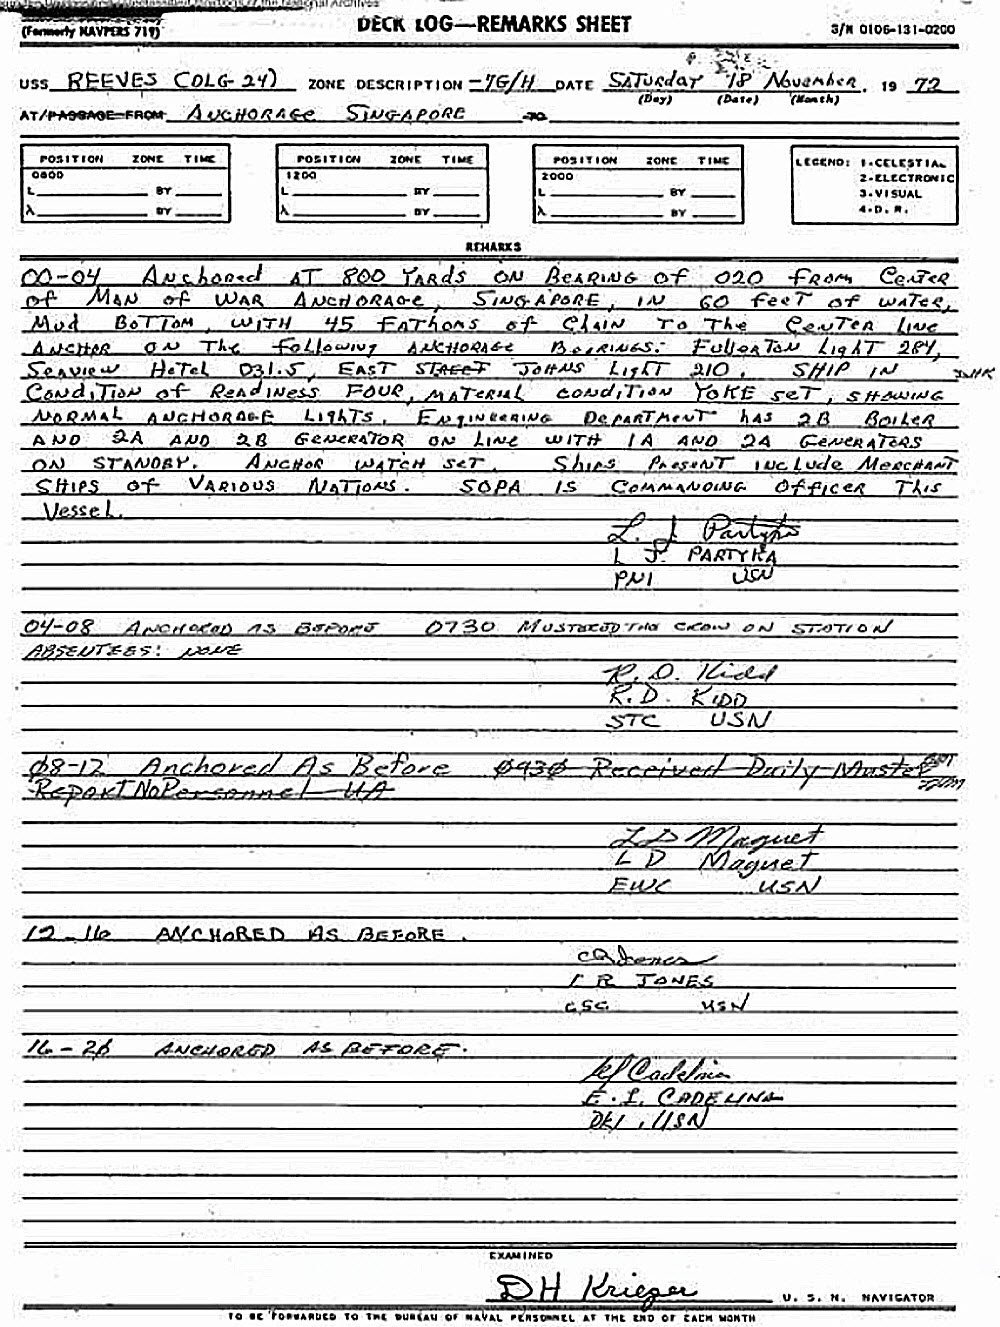 (Formerly NAVPERS 719)
DECK LOG—REMARKS SHEET
S/N 0106-131-0200
USS REEVES (DLG-24) ZONE DESCRIPTION -7G/H DATE SATURDAY 18 November, 19 72
(Day) (Date) (Month)
AT/PASSAGE FROM ANCHORAGE SINGAPORE TO
POSITION ZONE TIME
0800
L BY
λ BY
POSITION ZONE TIME
1200
L BY
λ BY
POSITION ZONE TIME
2000
L BY
λ BY
LEGEND: 1-CELESTIAL
2-ELECTRONIC
3-VISUAL
4-D. R.
REMARKS
00-04 Anchored AT 800 YARDS ON BEARING OF 020 FROM CENTER
OF MAN OF WAR ANCHORAGE, SINGAPORE, IN 60 FEET OF WATER,
MUD BOTTOM, WITH 45 FATHOMS OF CHAIN TO THE CENTER LINE
ANCHOR ON THE FOLLOWING ANCHORAGE BEARINGS: FULLERTON LIGHT 284,
SEAVIEW HOTEL 031.5, EAST STREET JOHNS LIGHT 210. SHIP IN DHK
CONDITION OF READINESS FOUR, MATERIAL CONDITION YOKE SET, SHOWING
NORMAL ANCHORAGE LIGHTS. ENGINEERING DEPARTMENT has 2B BOILER
AND 2A AND 2B GENERATOR ON LINE WITH 1A AND 2A GENERATORS
ON STANDBY. ANCHOR WATCH SET. Ships Present INCLUDE MERCHANT
SHIPS OF VARIOUS NATIONS. SOPA IS COMMANDING OFFICER THIS
Vessel.
L. J. Partyka
L J. PARTYKA
PN1 USN
04-08 ANCHORED AS BEFORE 0730 MUSTERED THE CREW ON STATION
ABSENTEES: NONE
R. D. Kidd
R. D. KIDD
STC USN
08-12 Anchored As Before 0930 Received Daily Muster
Report No Personnel UA
L D Maguet
L D Maguet
EWC USN
12-16 ANCHORED AS BEFORE.
CR Jones
C R JONES
CSC USN
16-20 ANCHORED AS BEFORE.
Cadelina
E. L. CADELINA
DK1, USN
EXAMINED
DH Krieger U. S. N. NAVIGATOR
TO BE FORWARDED TO THE BUREAU OF NAVAL PERSONNEL AT THE END OF EACH MONTH